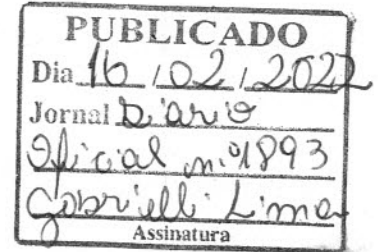 PUBLICADO
Dia 16 / 02 / 2022
Jornal Diario
Oficial n.º 1893
Gabrielli Lima
Assinatura